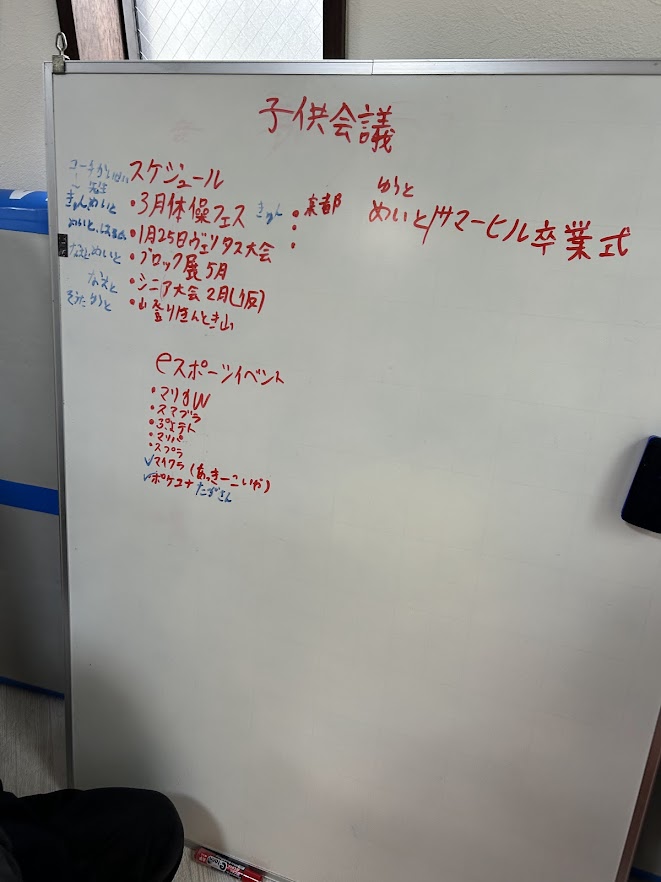 子供会議
スケジュール
先生
・3月体操フェス
・1月25日ヴェリタス大会
・ブロック展5月
・シニア大会2月(仮)
・山登りきんとき山
めいと
めいと
なえと
ゆうと
京都
ゆうと
めいと サマーヒル卒業式
eスポーツイベント
・マリオW
・スマブラ
・ぷよテト
・マリパ
・スプラ
✓マイクラ(あっきーこいや)
✓ポケユナ たずさん